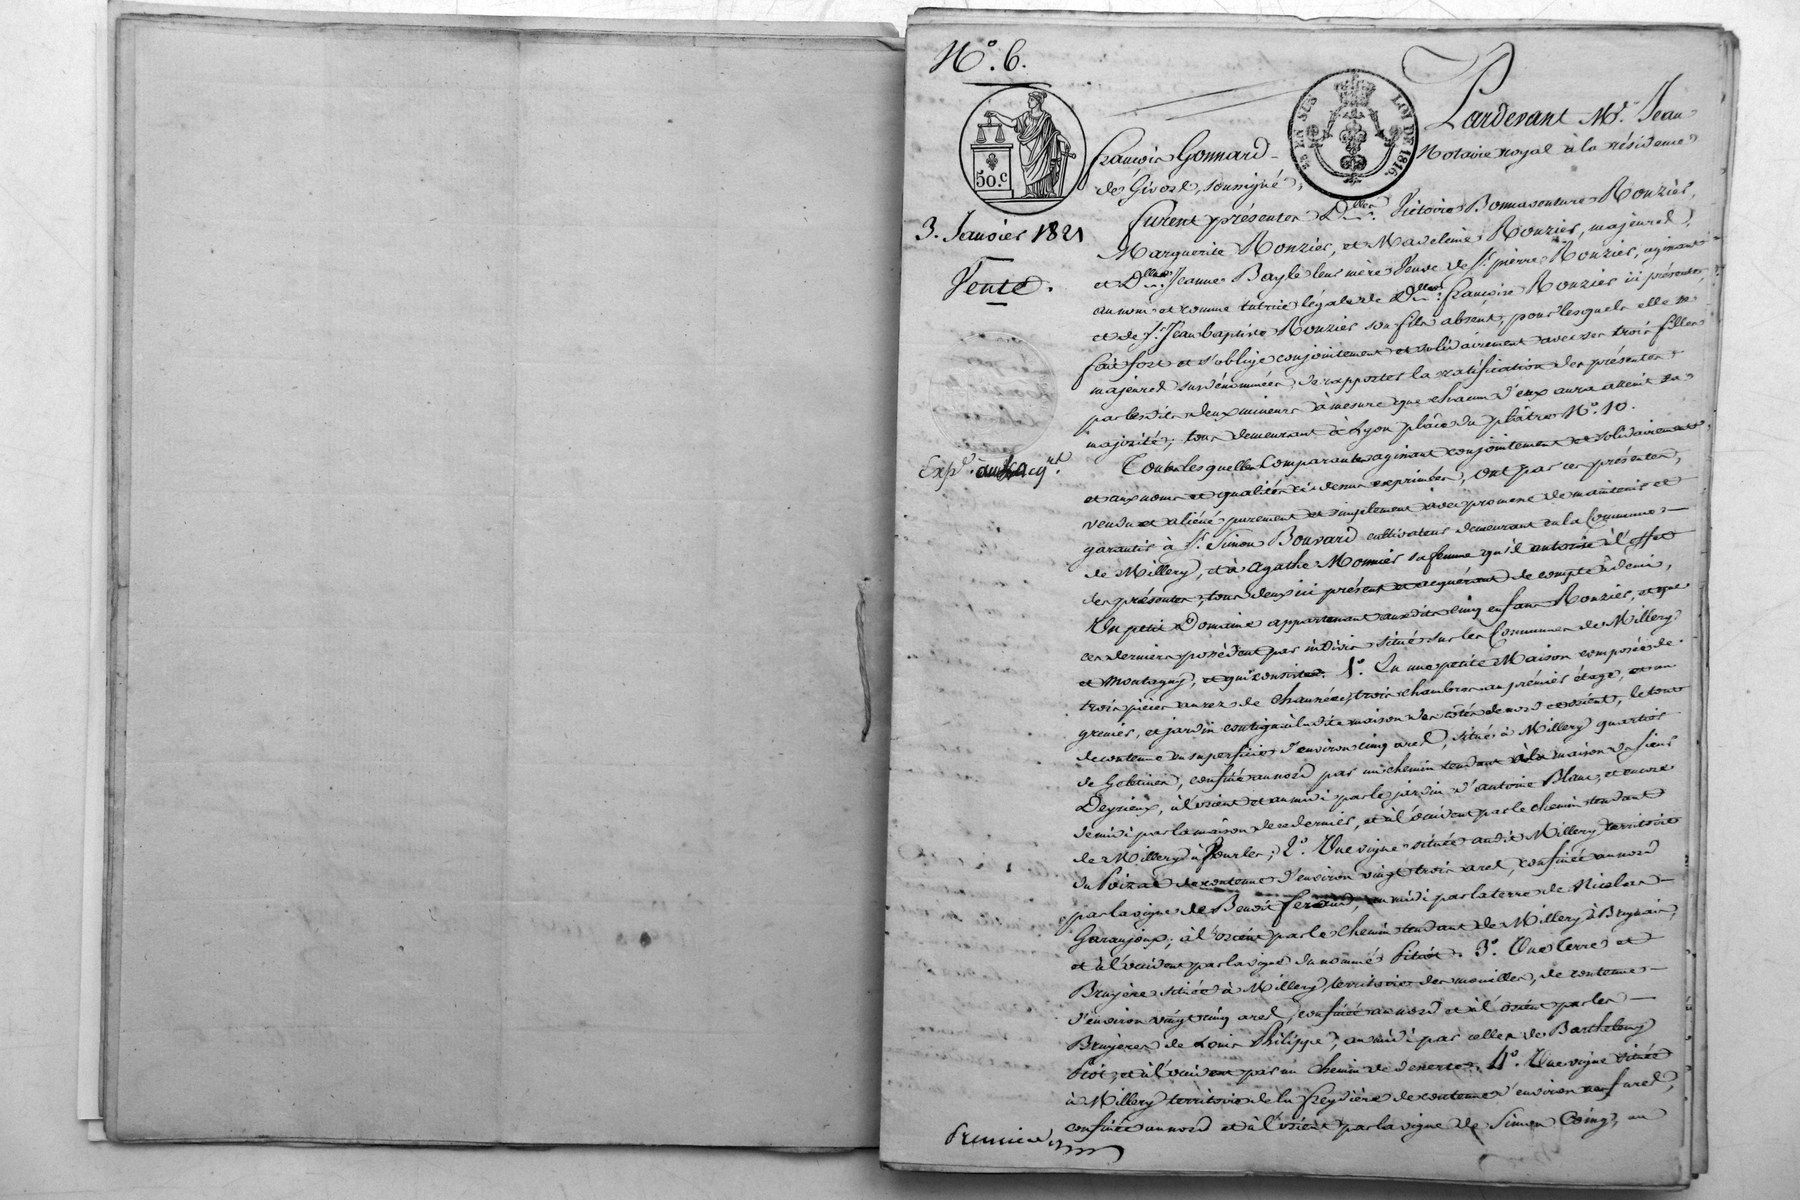 N.º 6.
50.c
EN SUS LOI DE 1816
Pardevant Me. Jean
françois Gonnard Notaire royal à la résidence
de Givors, soussigné,
3. Janvier 1821
Vente.
furent présentes Dlles. Victoire Bonnaventure Rouziès,
Marguerite Rouziès, et Madelaine Rouziès, majeures,
et D. Jeanne Bayle leur mère Veuve de Sr. pierre Rouziès, agissant
au nom et comme tutrice légale de Dlle. françoise Rouziès ici présente,
et de Sr. Jean baptiste Rouziès son fils absent, pour lesquels elle se
fait fort et s'oblige conjointement et solidairement avec ses trois filles
majeures susdénommées de rapporter la ratification des présentes
par lesdits deux mineurs à mesure que chacun d'eux aura atteint sa
majorité; tous demeurant à Lyon place du plâtre N.º 10.
Expd. aux acqrs.
Toutes lesquelles Comparantes agissant conjointement et solidairement,
et aux noms et qualités ci-dessus exprimées, ont par ces présentes,
vendu et aliéné purement et simplement avec promesse de maintenir et
garantir à Sr. Simon Bouvard cultivateur demeurant en la Commune
de Millery, et à Agathe Monnier sa femme qu'il autorise à l'effet
des présentes, tous deux ici présent et acquérant de compte à demi,
Un petit Domaine appartenant auxdits cinq enfans Rouziès, et que
ces derniers possèdent par indivis situé sur les Communes de Millery
et Montagny, et qui consiste. 1º. En une petite Maison composée de
trois pièces au rez de chaussée, trois chambres au premier étage, et un
grenier, et jardin contigu à ladite maison des côtés de nord et orient, le tout
de contenue en superficie d'environ cinq ares, situé à Millery quartier
de confiné au nord par un chemin tendant à la maison du sieur
Deyrieux, à l'orient et au midi par le jardin d'antoine Blanc, et encore
de midi par la maison de ce dernier, et à l'occident par le chemin tendant
de Millery à 2º. Une vigne située audit Millery territoire
du de contenue d'environ vingt trois ares, confinée au nord
par la vigne de Benoit feraud, au midi par la terre de Nicolas
Garanjoux, à l'orient par le chemin tendant de Millery à Brignais,
et à l'occident par la vigne du nommé Pitiot. 3º. Une Terre et
Bruyère située à Millery territoire des mouilles, de contenue
d'environ vingt cinq ares, confinée au nord et à l'orient par les
Bruyères de Louis Philippe, au midi par celles de Barthelemy
Piot, et à l'occident par un chemin de desserte. 4º. Une vigne située
à Millery territoire de la freydière de contenue d'environ neuf ares,
confinée au nord et à l'orient par la vigne de Simon Coing, au
Première